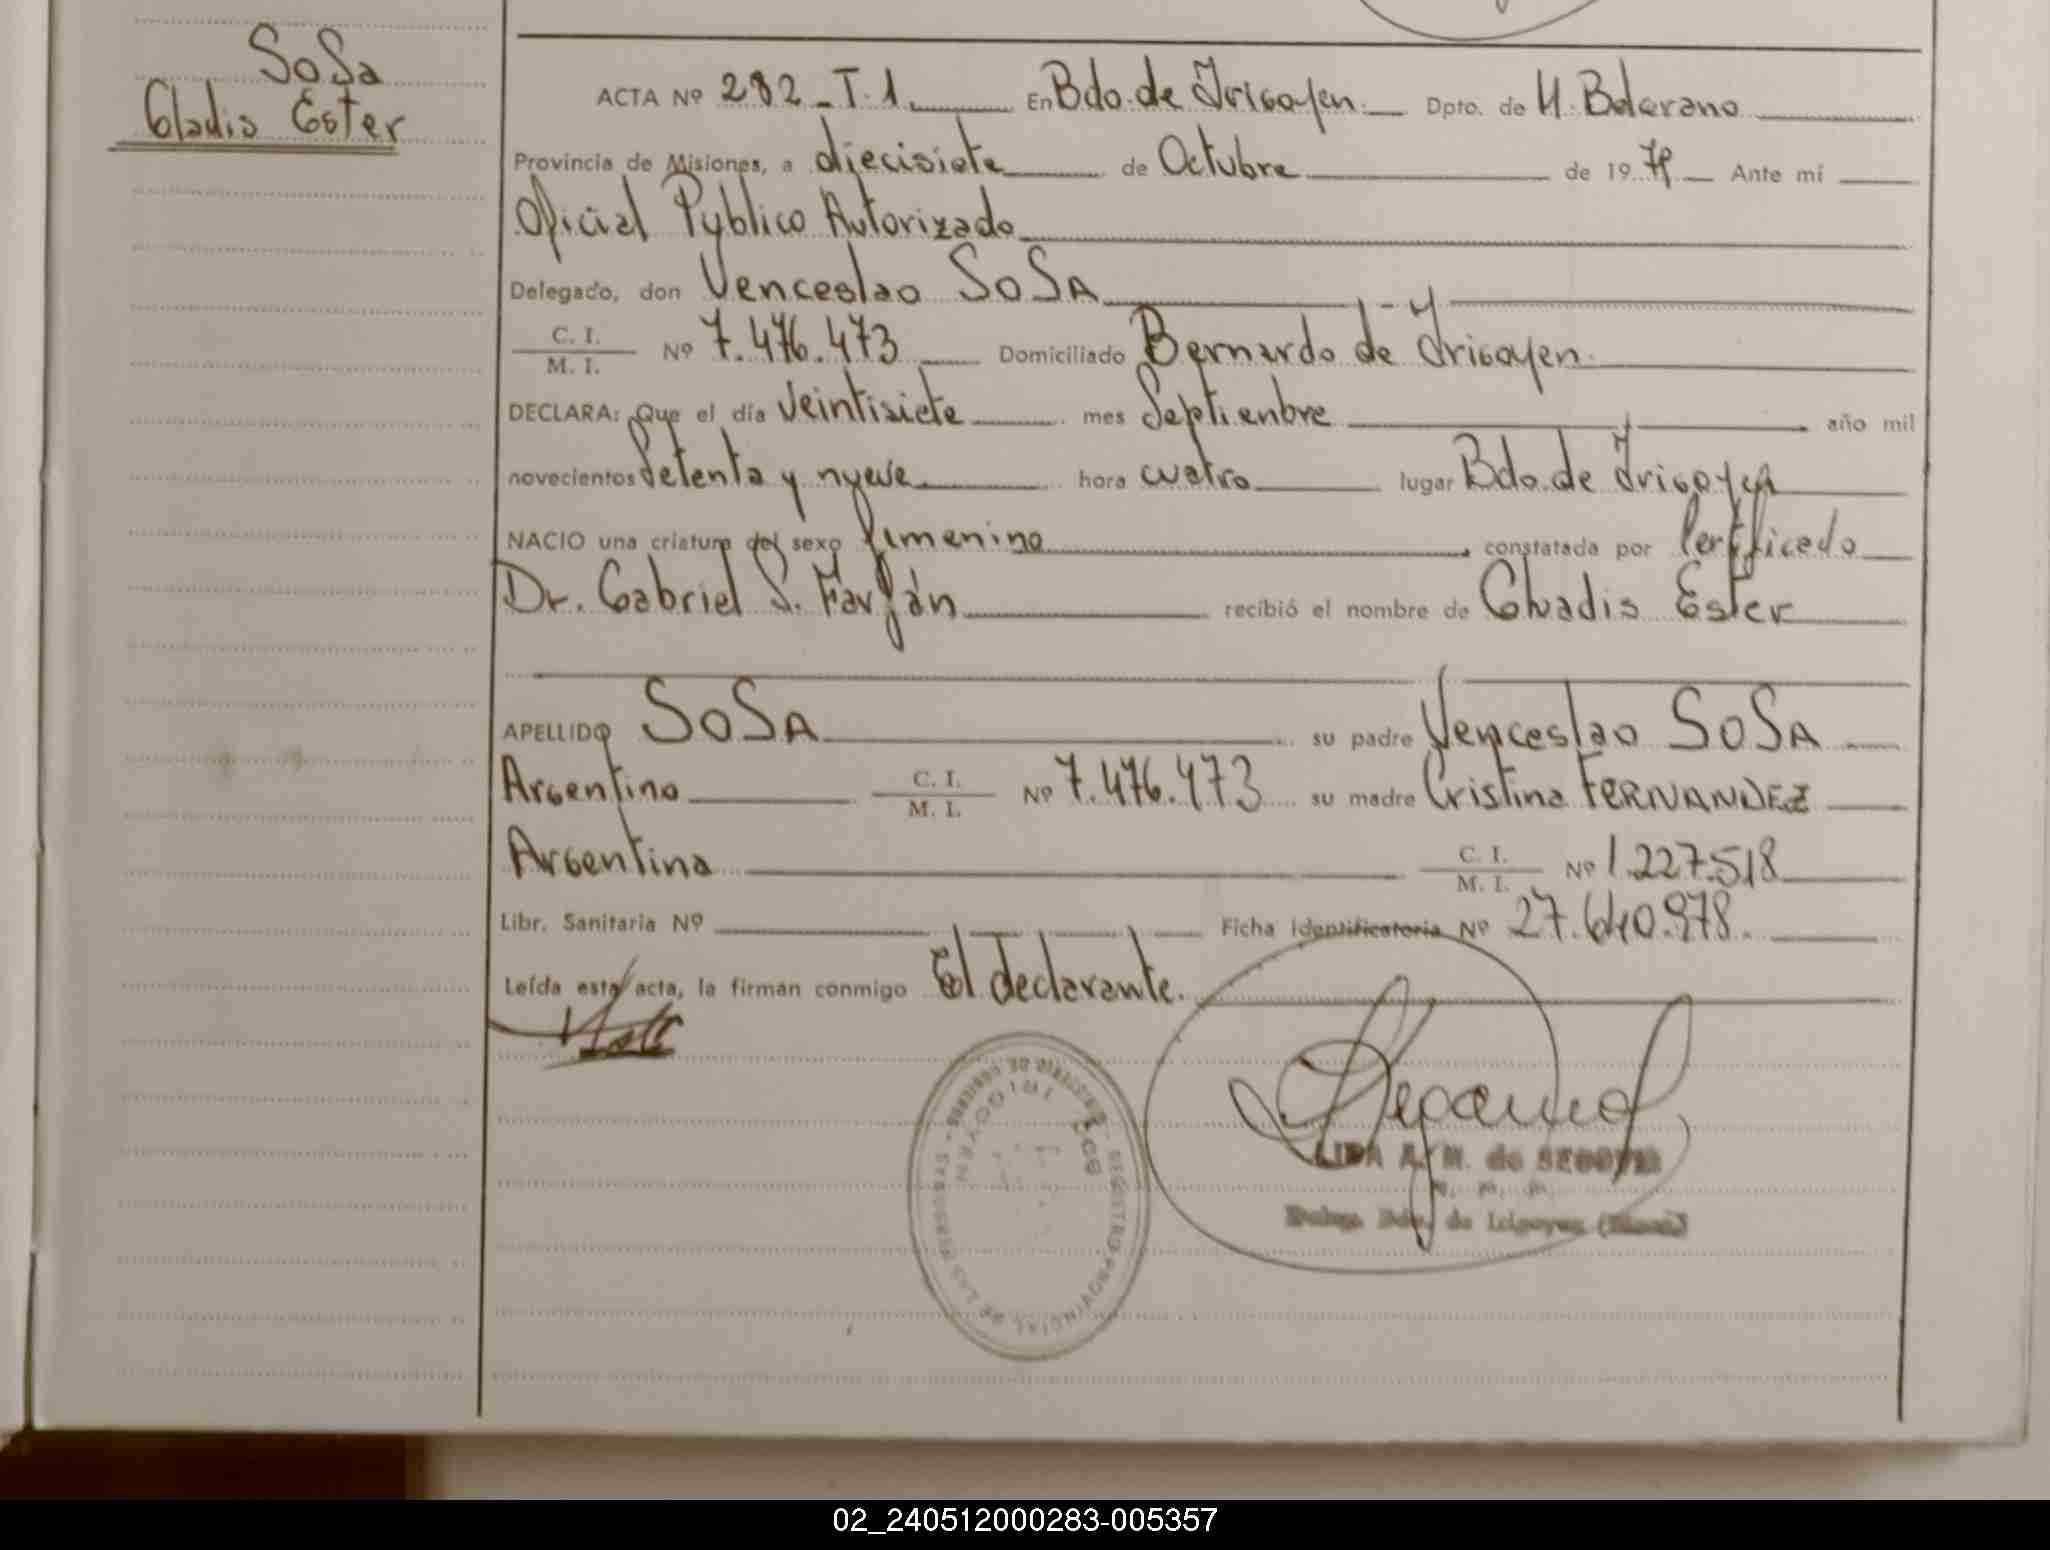 SoSa
Gladis Ester
ACTA Nº 282_T.1 En Bdo. de Irigoyen Dpto. de M. Belgrano
Provincia de Misiones, a diecisiete de Octubre de 1979 Ante mí
Oficial Público Autorizado
Delegado, don Venceslao SOSA
C. I.
M. I. Nº 7.476.473 Domiciliado Bernardo de Irigoyen
DECLARA: Que el día Veintisiete mes Septienbre año mil
novecientos Setenta y nueve hora cuatro lugar Bdo. de Irigoyen
NACIO una criatura del sexo femenino constatada por Certificado
Dr. Gabriel S. Farfán recibió el nombre de Gladis Ester
APELLIDO SOSA su padre Venceslao SOSA
Argentino C. I.
M. I. Nº 7.476.473 su madre Cristina FERNANDEZ
Argentina C. I.
M. I. Nº 1.227.518
Libr. Sanitaria Nº Ficha Identificatoria Nº 27.640.978.
Leída esta acta, la firman conmigo El declarante.
REGISTRO PROVINCIAL DE LAS PERSONAS
BDO. IRIGOYEN
LIDA A. M. de SEGOVIA
02_240512000283-005357